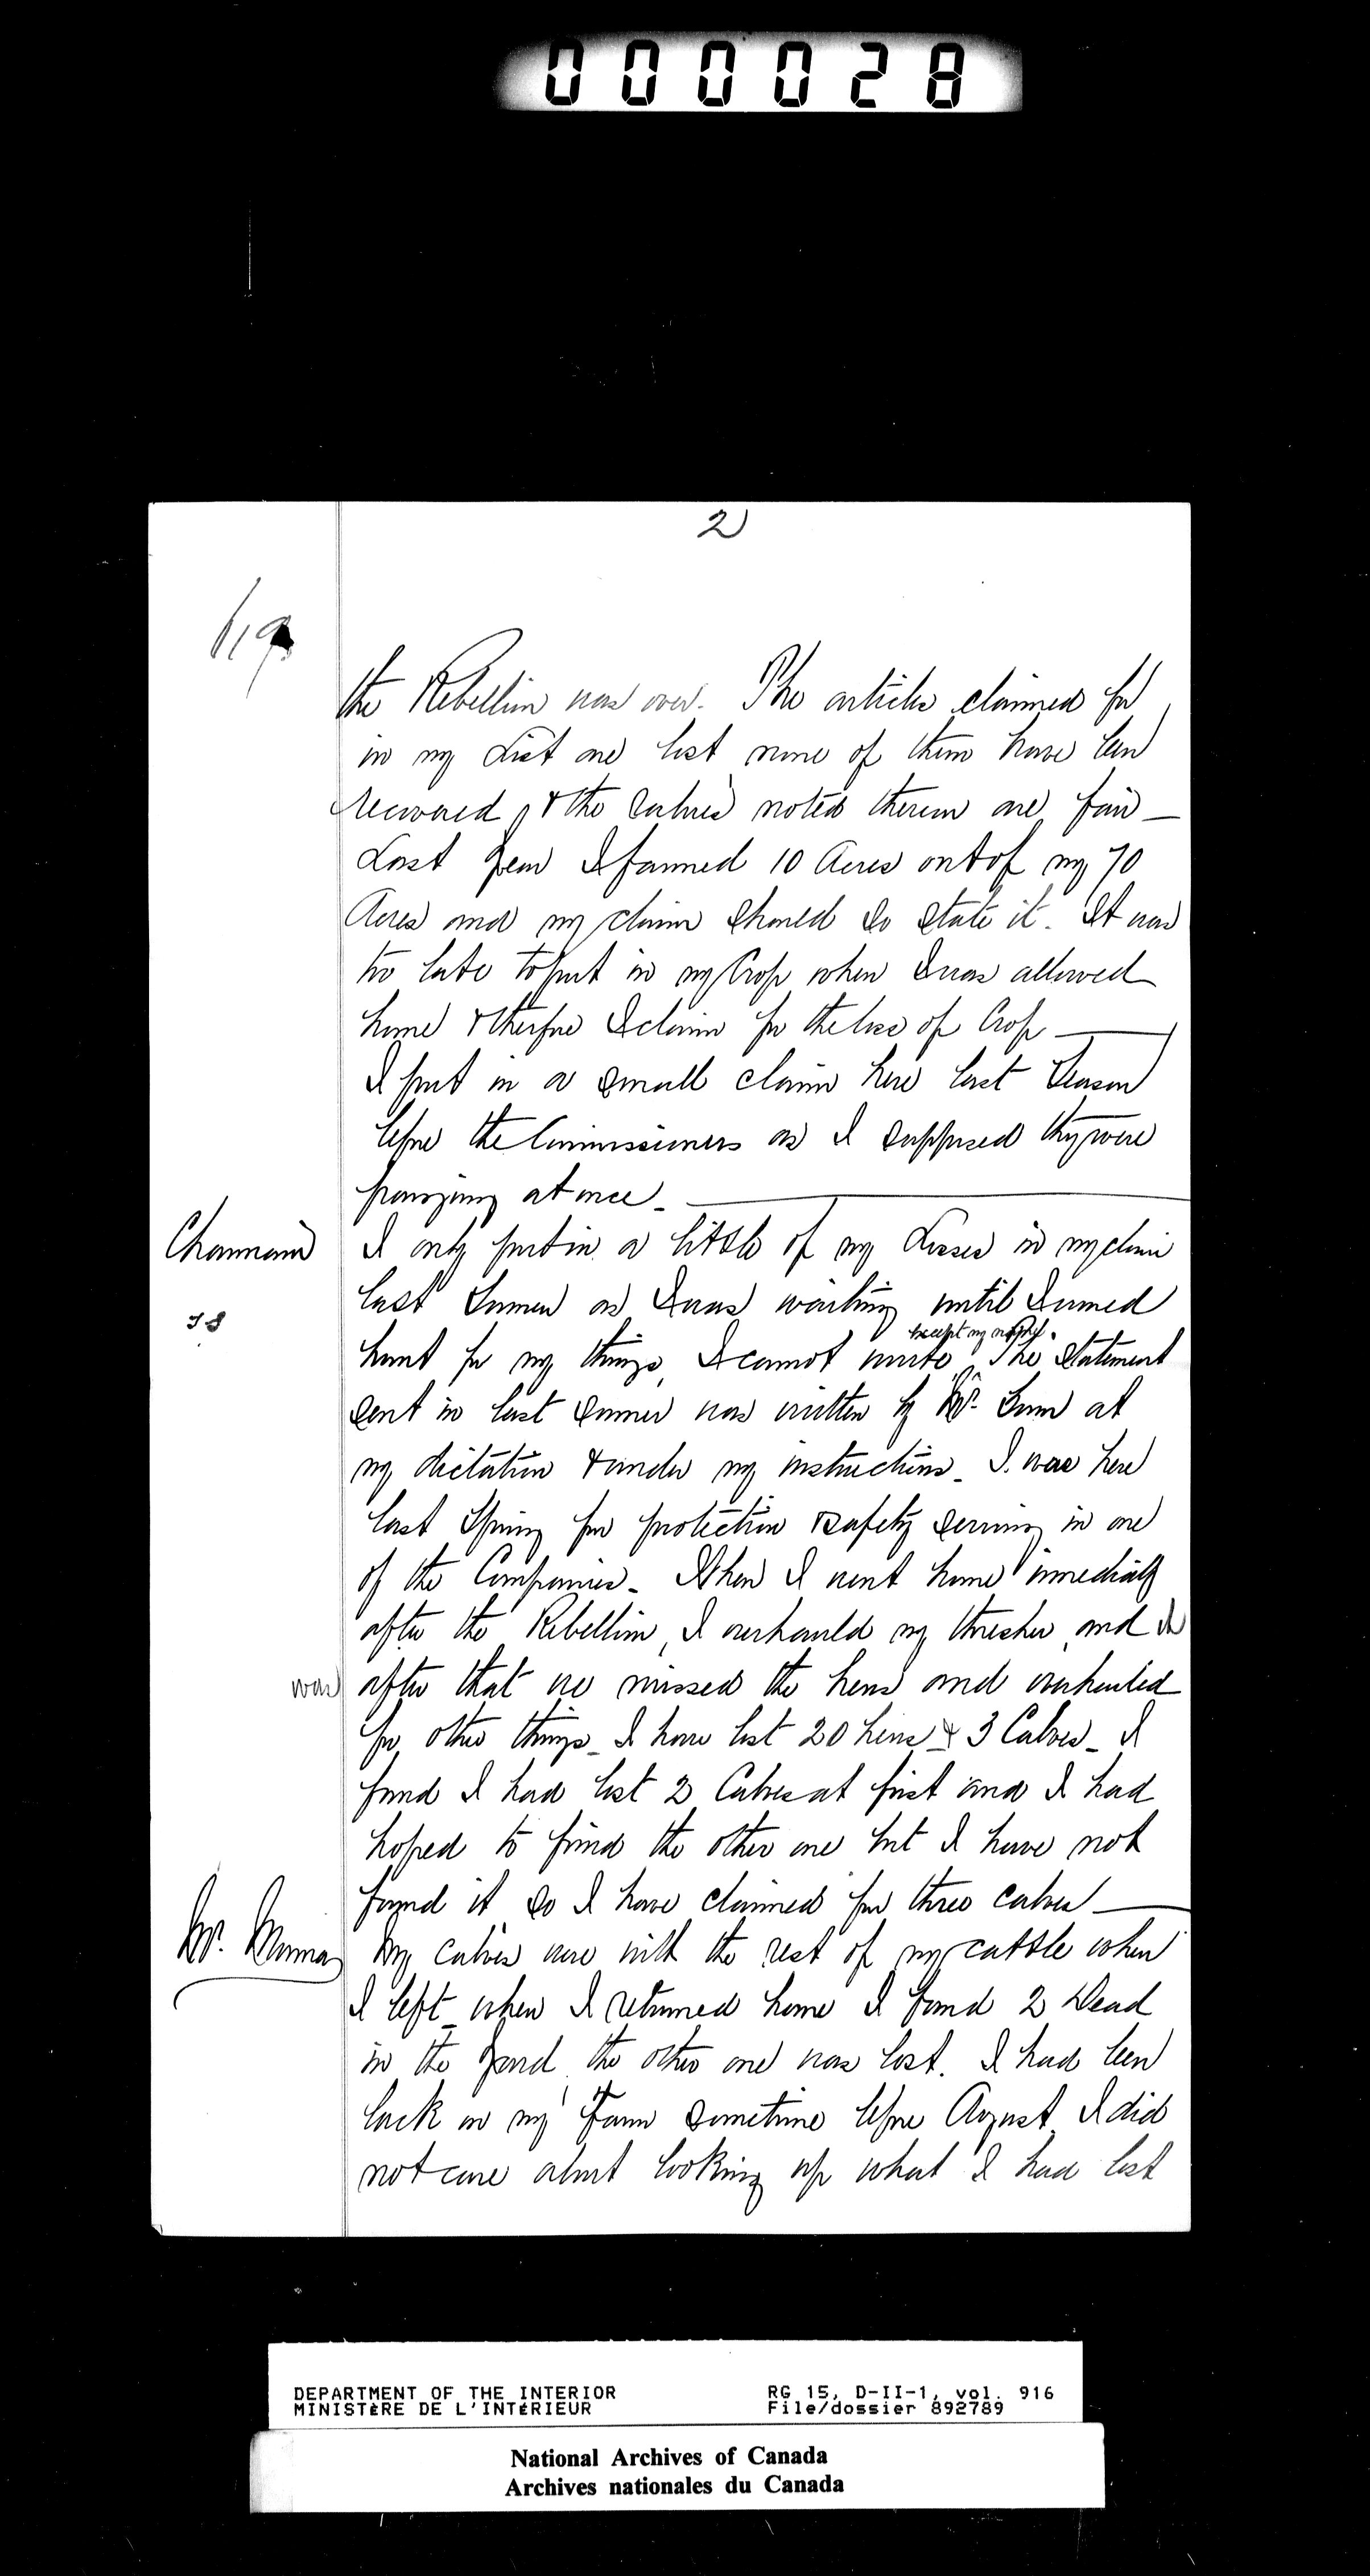 000028
2
619
the Rebellion was over. The articles claimed for
in my List are lost none of them have been
recovered, & the values noted therein are fair —
Last year I farmed 10 Acres out of my 70
Acres and my claim should so state it. It was
too late to put in my Crop when I was allowed
home & therefore I claim for the loss of Crop —
I put in a small claim here last Season
before the Commissioners as I supposed they were
paying at once —
Chairman I only put in a little of my Losses in my claim
last Summer as I was waiting until I
hunt for my things, I cannot write except my name. The Statement
sent in last summer was written by Mr. at
my dictation & under my instructions _ I was here
last Spring for protection & safety serving in one
of the Companies _ When I went home immediately
after the Rebellion, I overhauled my thresher, and
was after that we missed the hens and overhauled
for other things _ I have lost 20 hens & 3 Calves _ I
found I had lost 2 Calves at first and I had
hoped to find the other one but I have not
found it so I have claimed for three calves —
Mr. My calves were with the rest of my cattle when
I left _ when I returned home I found 2 Dead
in the yard the other one was lost. I had been
back on my Farm sometime before August I did
not care about looking up what I had lost
DEPARTMENT OF THE INTERIOR RG 15, D-II-1, vol. 916
MINISTÈRE DE L'INTÉRIEUR File/dossier 892789
National Archives of Canada
Archives nationales du Canada